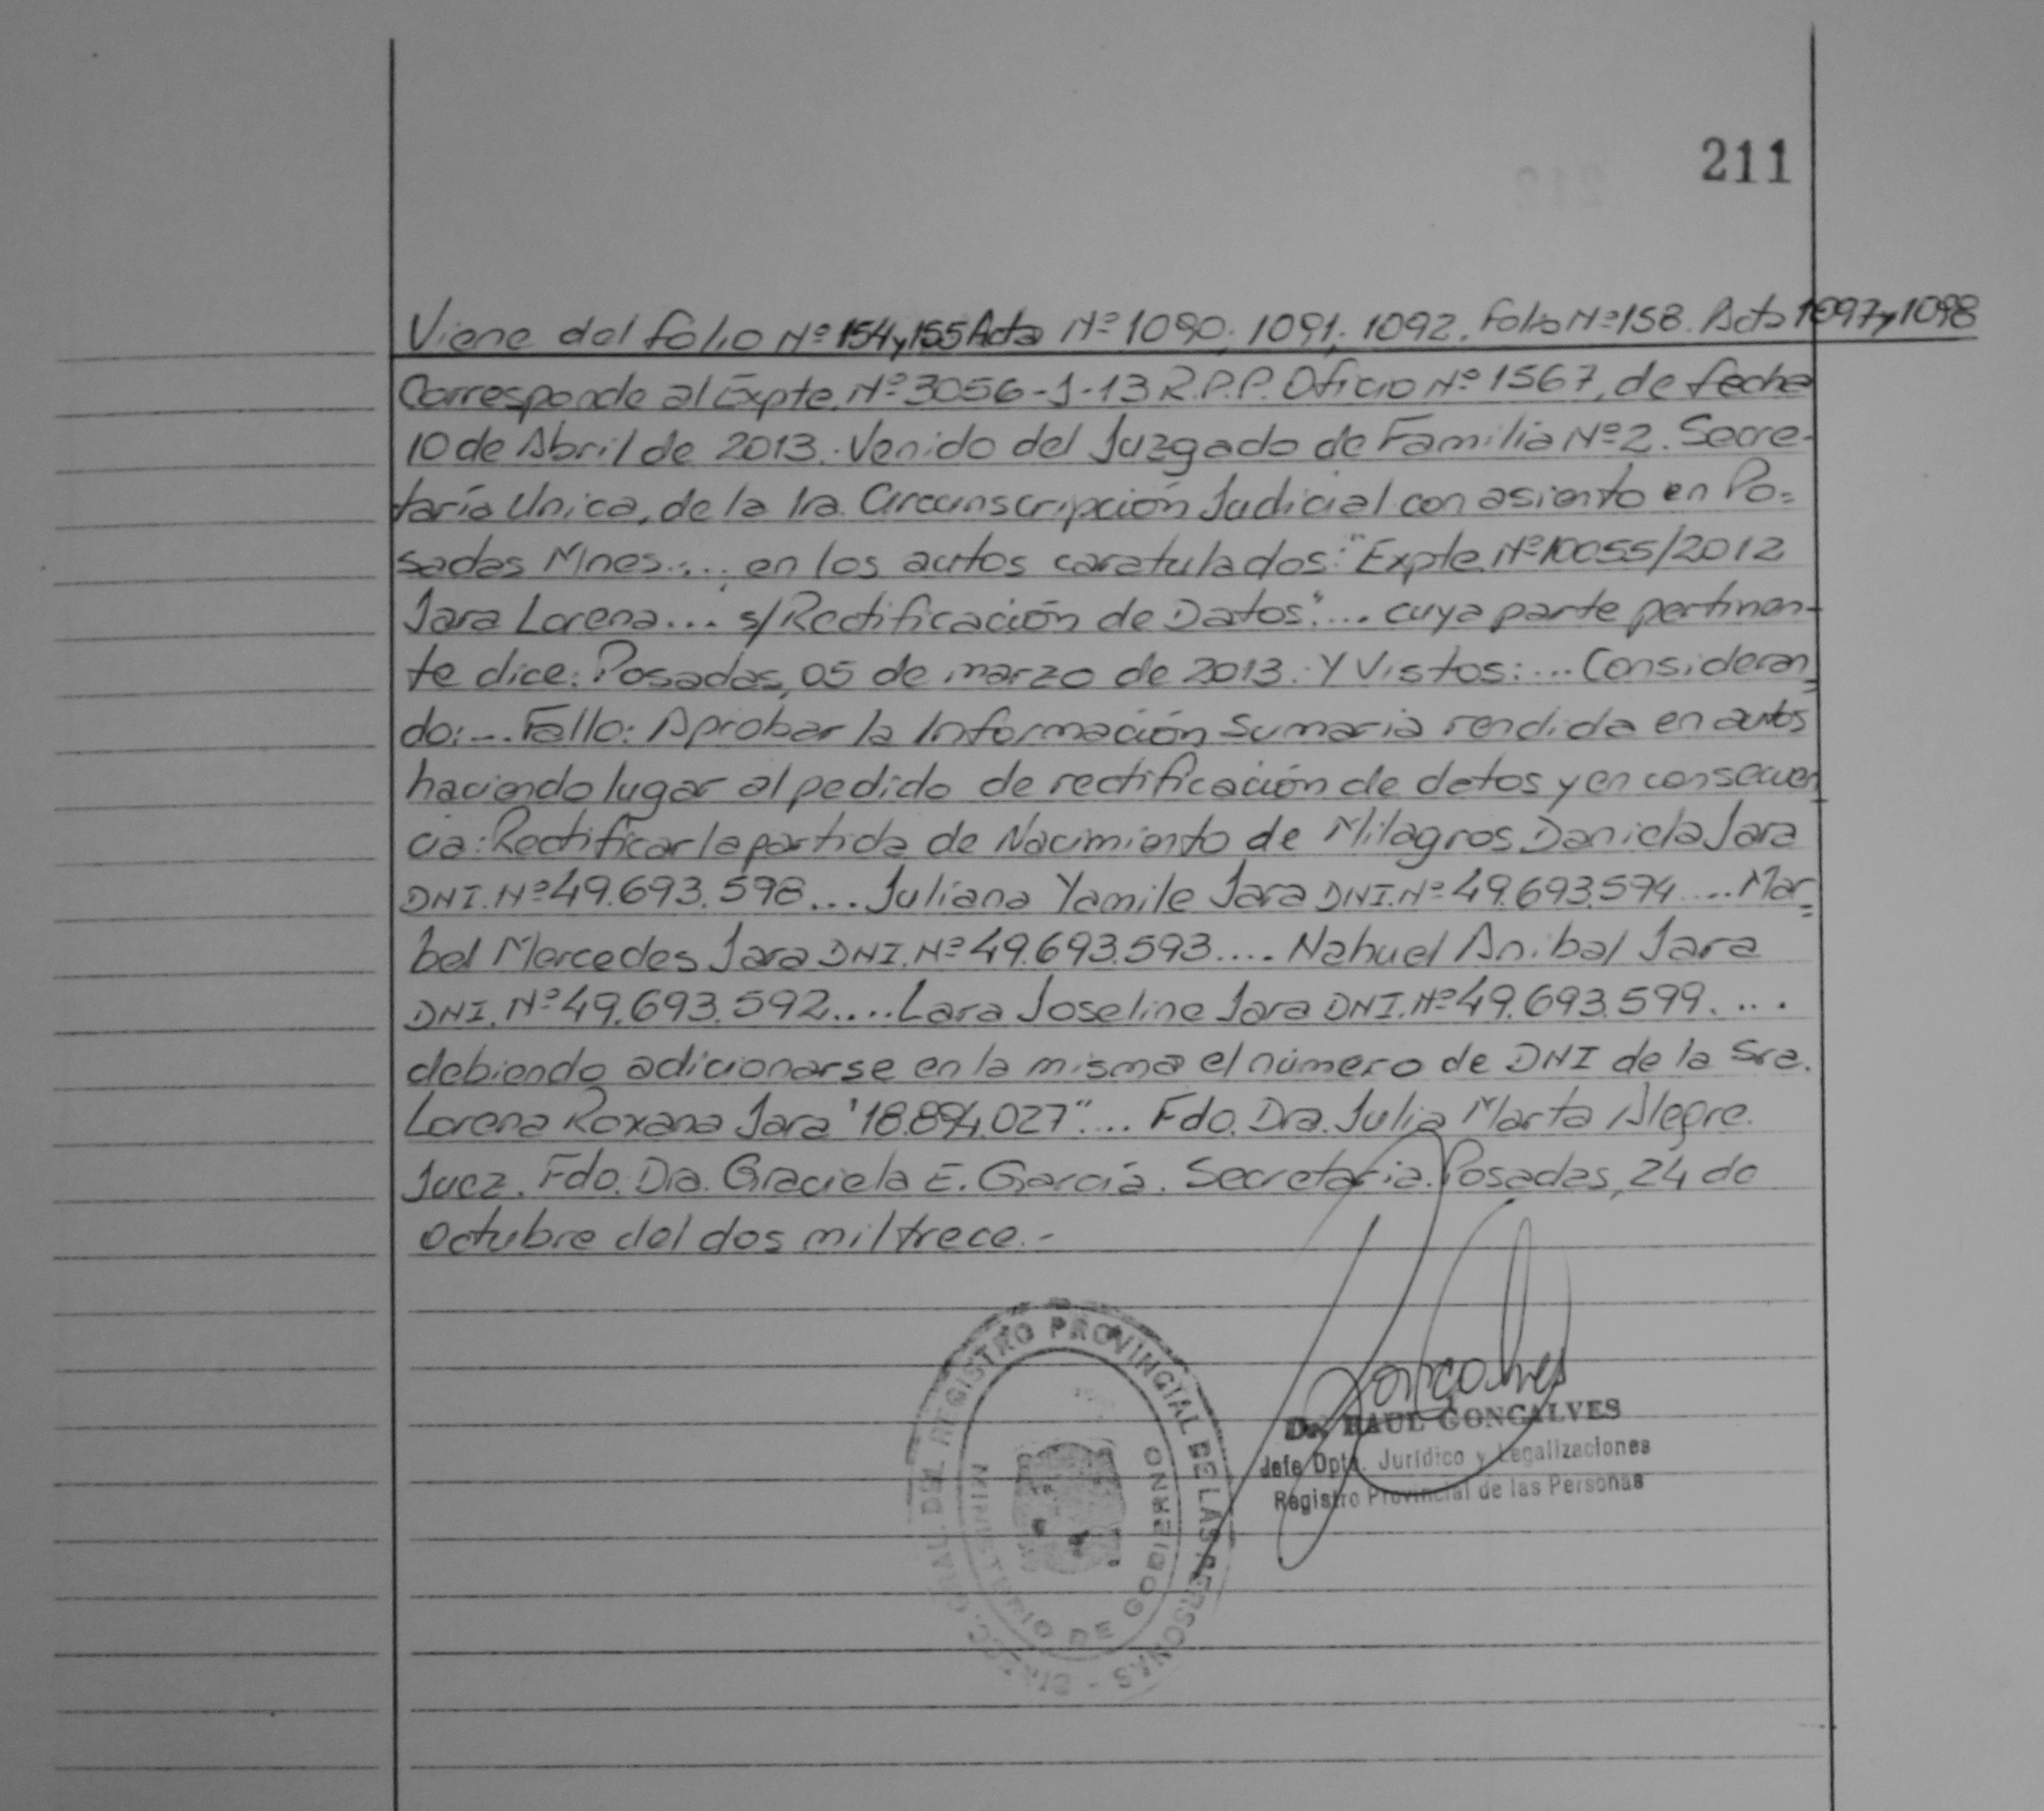 211
Viene del folio Nº 154 y 155 Acta Nº 1090, 1091, 1092. Folio Nº 158. Acta 1097 y 1098
Corresponde al Expte. Nº 3056-J-13 R.P.P. Oficio Nº 1567, de fecha
10 de Abril de 2013. Venido del Juzgado de Familia Nº 2. Secre-
taría Unica, de la 1ra Circunscripción Judicial con asiento en Po=
sadas Mnes.... en los autos caratulados: "Expte. Nº 10055/2012
Jara Lorena... s/Rectificación de Datos".... cuya parte pertinen-
te dice: Posadas, 05 de marzo de 2013. Y Vistos:... Consideran=
do:... Fallo: Aprobar la Información Sumaria rendida en autos
haciendo lugar al pedido de rectificación de datos y en consecuen-
cia: Rectificar la partida de Nacimiento de Milagros Daniela Jara
DNI. Nº 49.693.598... Juliana Yamile Jara DNI. Nº 49.693.594.... Mar=
bel Mercedes Jara DNI. Nº 49.693.593.... Nahuel Anibal Jara
DNI. Nº 49.693.592.... Lara Joseline Jara DNI. Nº 49.693.599....
debiendo adicionarse en la misma el número de DNI de la Sra.
Lorena Roxana Jara "18.894.027"... Fdo. Dra. Julia Marta Alegre.
Juez. Fdo. Dra. Graciela E. García. Secretaria. Posadas, 24 de
Octubre del dos mil trece.-
DIREC. GRAL. DEL REGISTRO PROVINCIAL DE LAS PERSONAS -
MINISTERIO DE GOBIERNO
Goncalves
Dr. RAUL GONCALVES
Jefe Dpto. Jurídico y Legalizaciones
Registro Provincial de las Personas